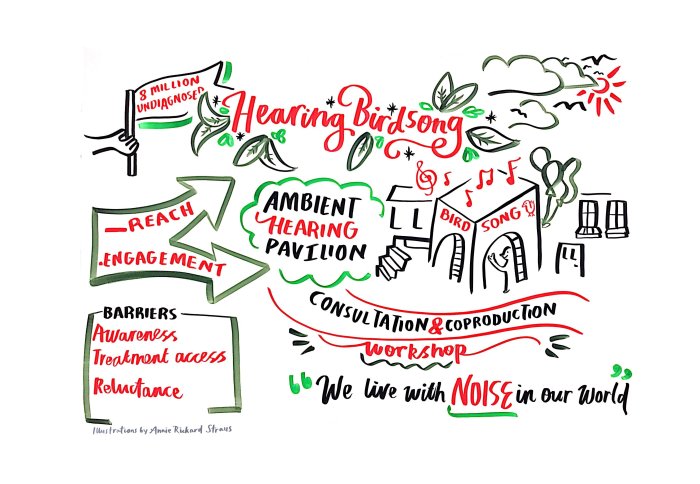 8 MILLION
UNDIAGNOSED
Hearing Birdsong
REACH
.ENGAGEMENT
AMBIENT
HEARING
PAVILION
BIRD SONG
BARRIERS
Awareness
Treatment access
Reluctance
CONSULTATION & COPRODUCTION
WORKSHOP
"We live with NOISE in our World"
Illustrations by Annie Rickard Straus